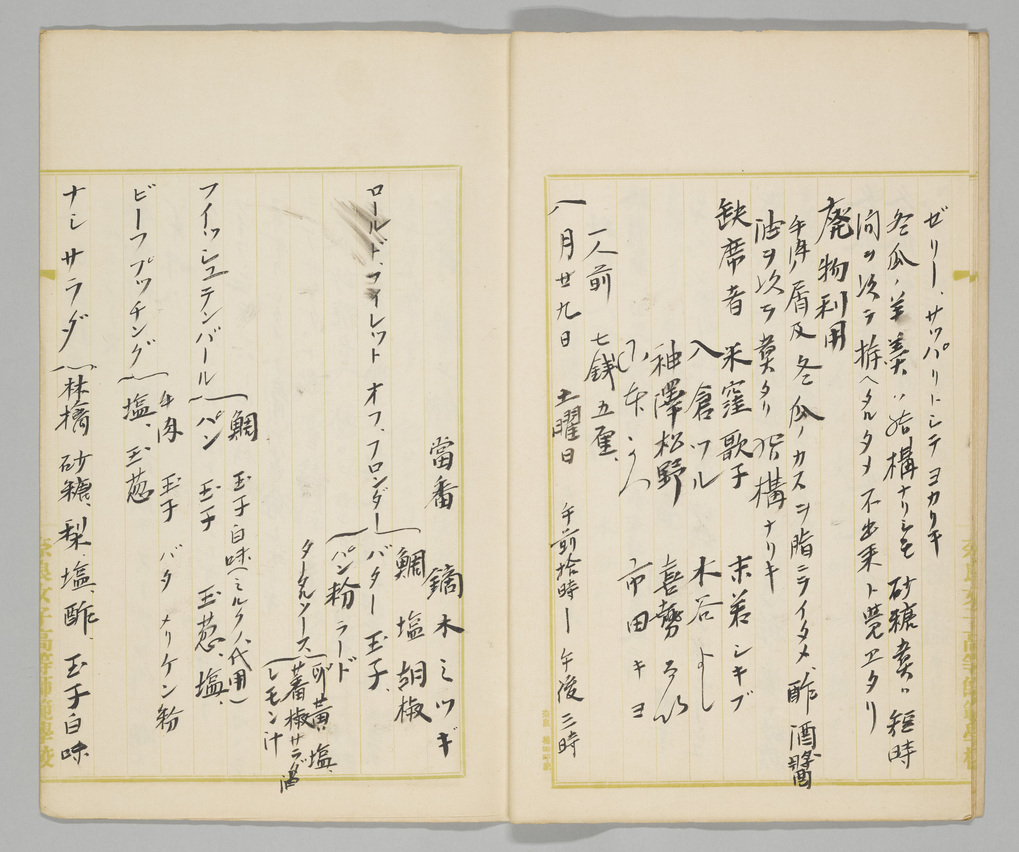 ゼリー、サッパリトシテヨカリキ
冬瓜ノ羊羹ハ結構ナリシモ 砂糖煮ハ 短時
間ヲ次テ拵ヘタルタメ 不出来ト覺エタリ
廃物利用
牛肉ノ屑及冬瓜ノカスヲ脂ニテイタメ、酢 酒 醤
油ヲ次テ煮タリ 結構ナリキ
缺席者 米窪歌子 末若シキブ
八倉ツル 木谷よし
神澤松野 喜勢
市田キヨ
一人前 七銭五厘、
八月廿九日 土曜日 午前拾時ー午後三時
當番 鏑木ミツギ
鯛 塩 胡椒
ロールド、フイレット オフ、フロンダー バター 玉子、
パン粉 ラード
タータルソース 卵黄、塩、
蕃椒 サラダ油
レモン汁
鯛 玉子白味(ミルクノ代用)
フイッシュテンバール パン 玉子 玉葱、塩、
牛肉 玉子 バタ メリケン粉
ビーフプッチング 塩、玉葱
ナシサラダ 林檎 砂糖、梨、塩、酢、玉子白味
奈良女子高等師範學校
奈良女子高等師範學校